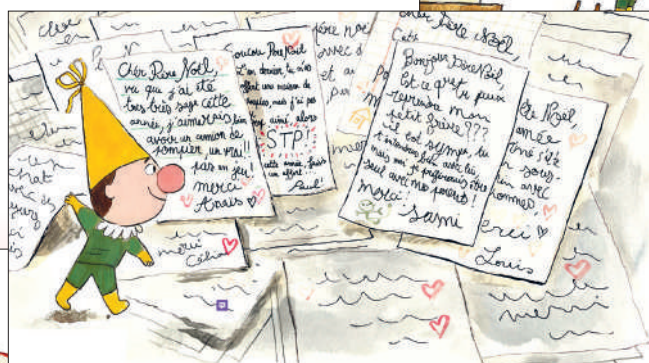 cher
Cher Père Noël,
vu que j'ai été
très très sage cette
année, j'aimerais bien
avoir un camion de
pompier, un vrai!!
pas en jeu!
merci
Anaïs
Coucou Père Noël
L'an dernier, tu m'as
offert une maison de
mais j'ai pas
aimé, alors
STP!
cette année, fais
un effort...
Paul!
Cher Père Noël,
Bonjour Père Noël,
Est ce que tu peux
reprendre mon
petit frère???
Il est sympa, tu
t'entendras bien avec lui
mais moi je préférerais être
seul avec mes parents!
merci.
Sami
Père Noël,
avec
merci
Louis
chat
avec des
merci
Célia
merci